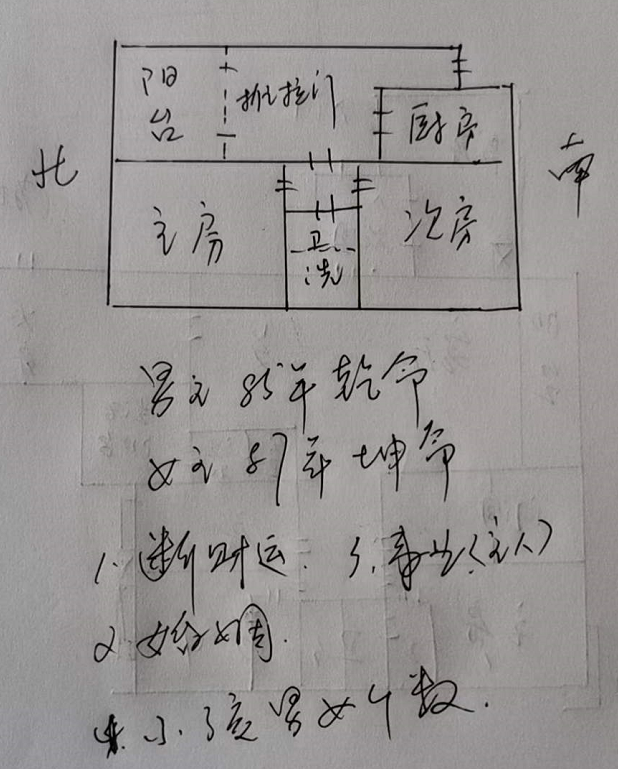 阳台
推拉门
厨房
北
南
主房
卫
洗
次房
男主 85年 乾命
女主 87年 坤命
1. 断财运. 3. 事业(主人)
2. 婚姻.
4. 小孩男女个数.